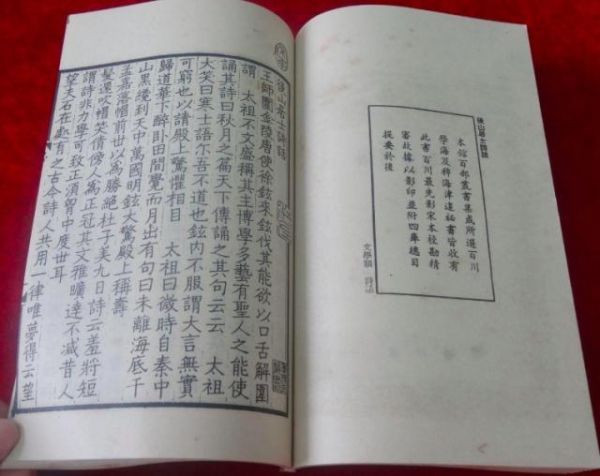 後山居士詩話
本館百部叢書集成所選百川
學海及稗海津逮祕書皆收有
此書百川最先影宋本校勘精
審故據以影印並附四庫總目
提要於後
文學類 詩話
後山居士詩話
王師圍金陵唐使徐鉉來鉉伐其能欲以口舌解圍
謂 太祖不文盛稱其主博學多藝有聖人之能使
誦其詩曰秋月之篇天下傳誦之其句云云 太祖
大笑曰寒士語尔吾不道也鉉内不服謂大言無實
可窮也以請殿上驚懼相目 太祖曰微時自秦中
歸道華下醉卧田間覺而月出有句曰未離海底千
山黑纔到天中萬國明鉉大驚殿上稱壽
孟嘉落帽前世以為勝絶杜子美九日詩云羞將短
髮還吹帽笑倩傍人為正冠其文雅曠達不减昔人
謂詩非力學可致正須胷中度世耳
望夫石在處有之古今詩人共用一律唯夢得云望